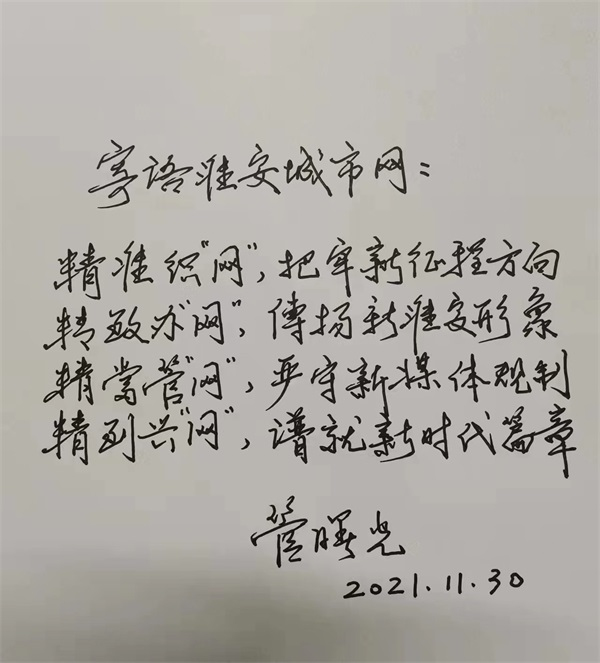 寄语淮安城市网：
精准织"网"，把牢新征程方向
精致办"网"，傳扬新淮安形象
精当管"网"，严守新媒体规制
精到兴"网"，谱就新时代篇章
管曙光
2021.11.30